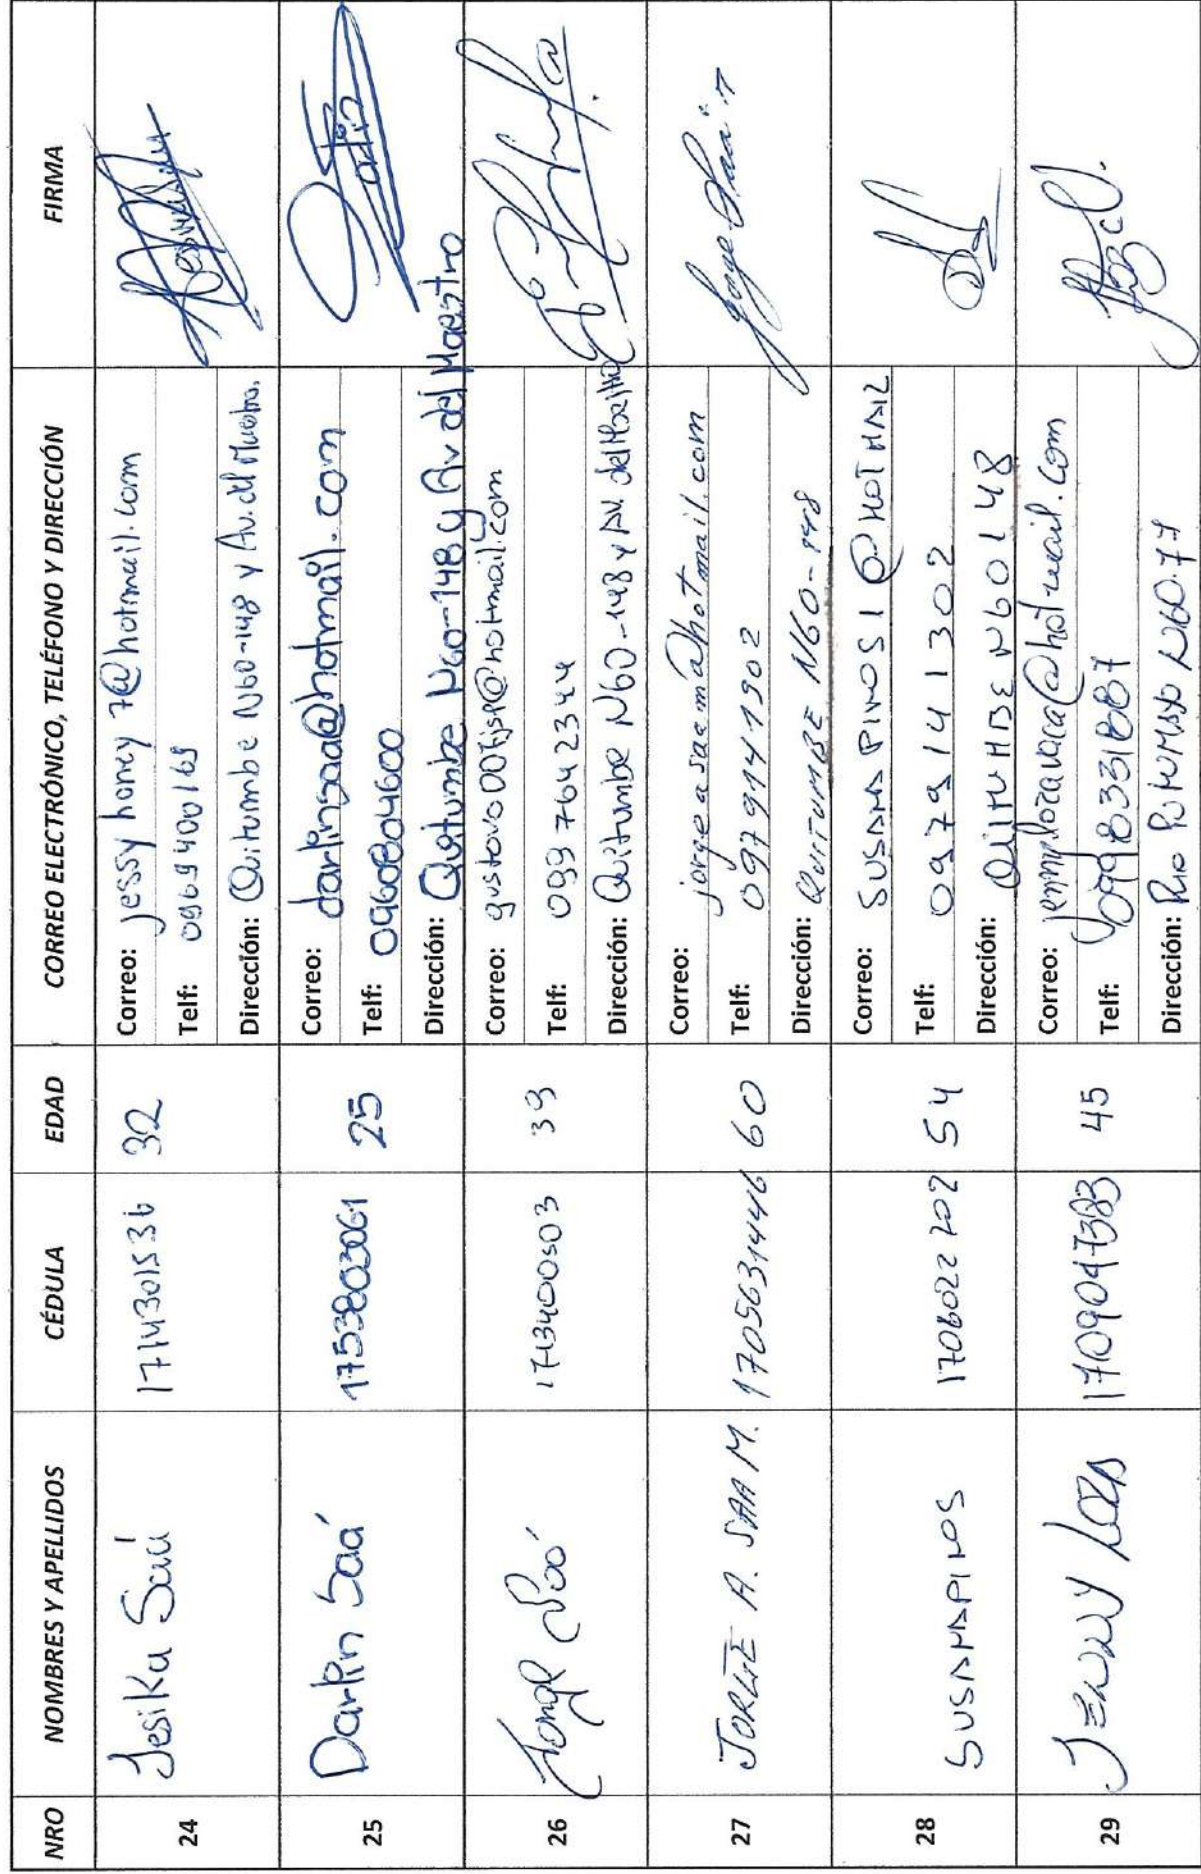 NRO NOMBRES Y APELLIDOS CÉDULA EDAD CORREO ELECTRÓNICO, TELÉFONO Y DIRECCIÓN FIRMA
24 Jesika Saá 1714301536 32
Correo: jessyhoney7@hotmail.com
Telf: 0969400169
Dirección: Quitumbe N60-148 y Av. del Maestro.
25 Darlin Saá 1753803061 25
Correo: darlinsaa@hotmail.com
Telf: 0960804600
Dirección: Quitumbe N60-148 y Av del Maestro
Darlin
26 Jorge Saá 1713400503 39
Correo: gustavo007jsp@hotmail.com
Telf: 0997642344
Dirección: Quitumbe N60-148 y AV. del Maestro
27 JORGE A. SAA M. 1705631446 60
Correo: jorgeasaam@hotmail.com
Telf: 0979141902
Dirección: QUITUMBE N60-148
Jorge Saa
28 SUSANA PINOS 1706022702 54
Correo: SUSANAPINOS1@HOTMAIL
Telf: 0979141302
Dirección: QUITUMBE N60148
29 JENNY LOZA 1709047383 45
Correo: jennylozavaca@hotmail.com
Telf: 0998331887
Dirección: RIO PUTUMAYO N60.77